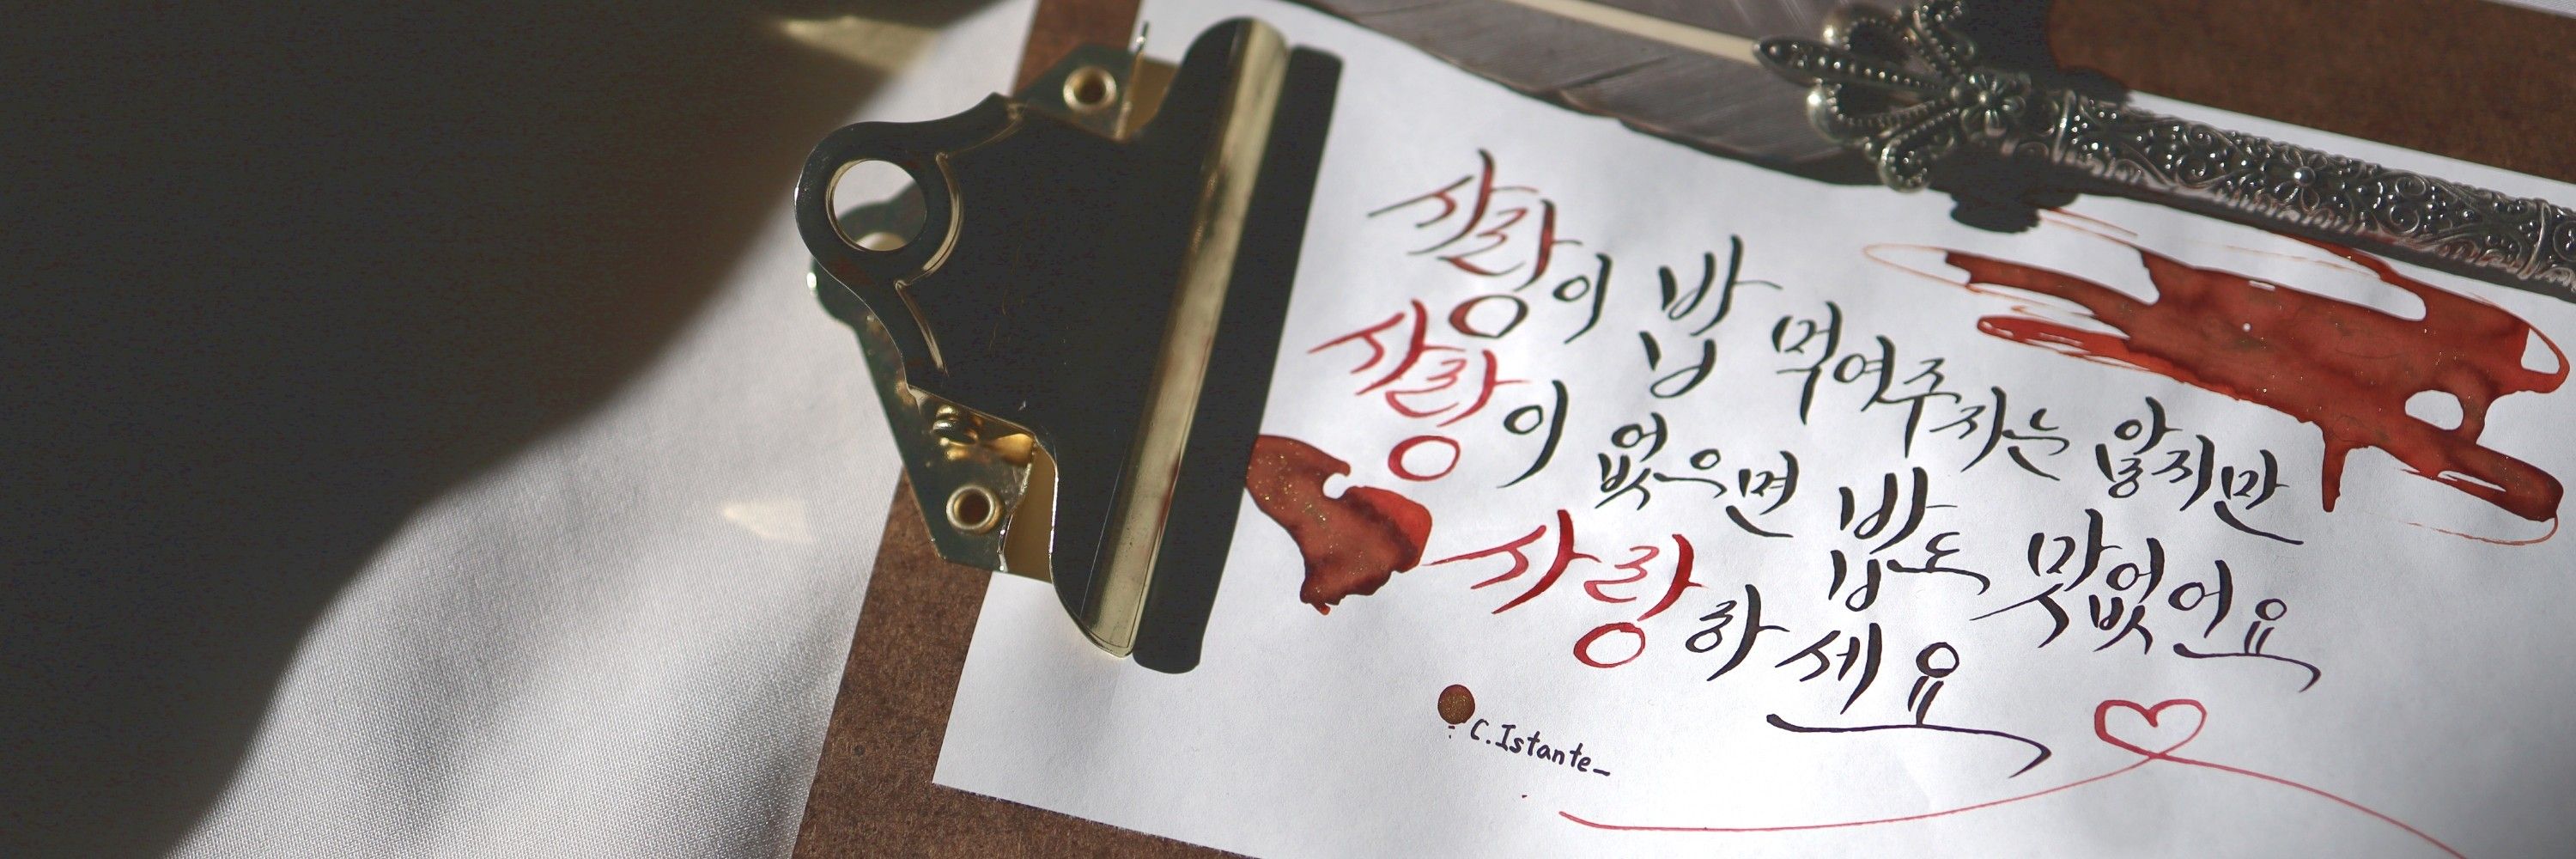 사랑이 밥 먹여주자는 않지만
사랑이 없으면 밥도 맛없어요
사랑하세요
C.Istante_